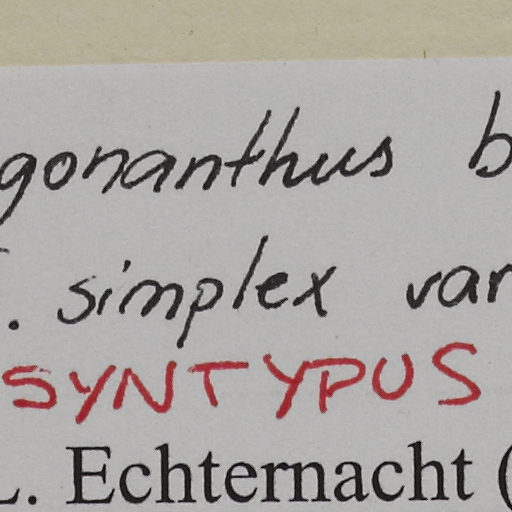 gonanthus b
. simplex var
SYNTYPUS
L. Echternacht (